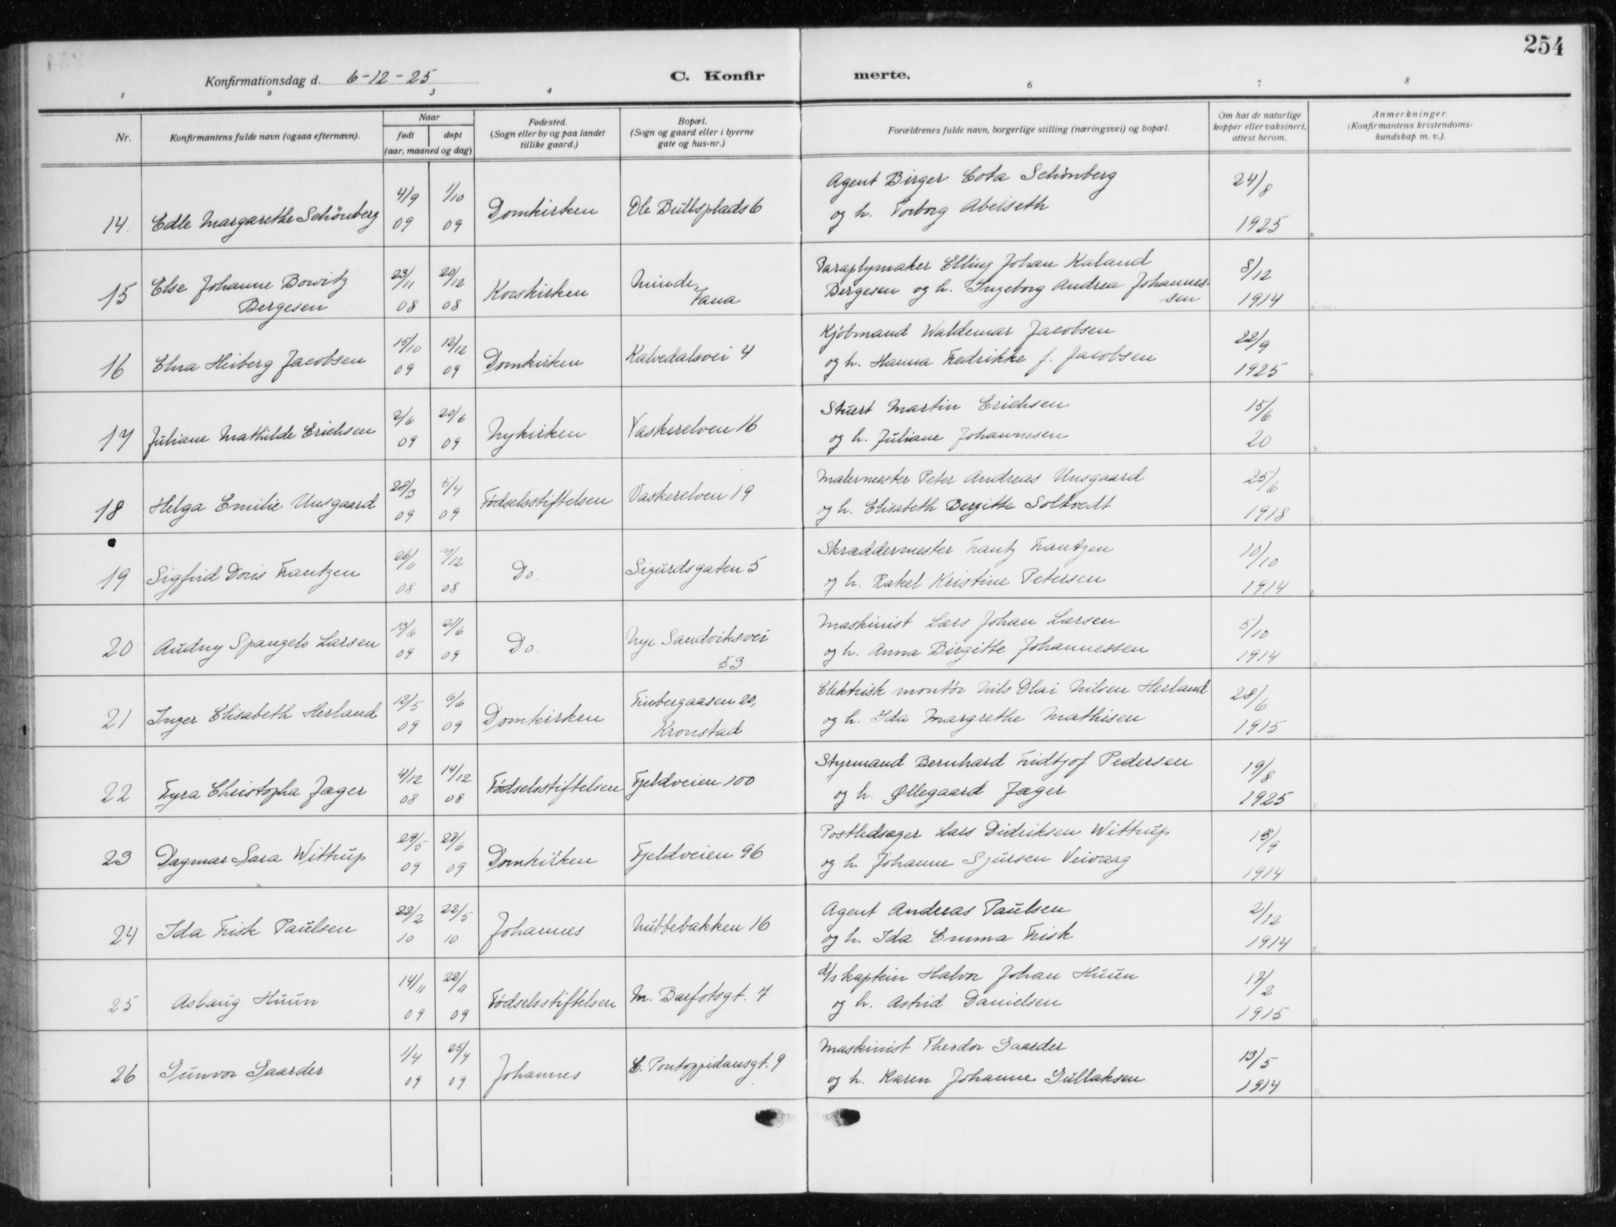 254
Konfirmationsdag d. 6-12-25
C. Konfirmerte.
1 2 3 4 6 7 8
Nr.
Konfirmantens fulde navn (ogsaa efternavn).
Naar
født døpt
(aar, maaned og dag)
Fødested.
(Sogn eller by og paa landet
tillike gaard.)
Bopæl.
(Sogn og gaard eller i byerne
gate og hus-nr.)
Forældrenes fulde navn, borgerlige stilling (næringsvei) og bopæl.
Om hat de naturlige
kopper eller vaksinert,
attest herom.
Anmerkninger.
(Konfirmantens kristendoms-
kundskap m. v.).
14. Edle Margarethe Schönberg 4/9 09 1/10 09 Domkirken Ole Bullsplads 6
Agent Birger Cota Schönberg 24/8
og h. Torborg Abelseth 1925
15 Else Johanne Bowitz 23/11 08 20/12 08 Korskirken Minde
Bergesen Fana
Paraplymaker Elling Johan Kaland 8/12
Bergesen og h. Ingeborg Andrea Johannes-
sen 1914
16 Elna Heiberg Jacobsen 15/10 09 12/12 09 Domkirken Kalvedalsvei 4
Kjøbmand Waldemar Jacobsen 22/9
og h. Hanna Fredrikke f. Jacobsen 1925
17 Juliane Mathilde Erichsen 2/6 09 20/6 09 Nykirken Vaskerelven 16
Stuert Martin Erichsen 15/6
og h. Juliane Johannesen 20
18 Helga Emilie Unsgaard 28/3 09 5/4 09 Fødselsstiftelsen Vaskerelven 19
Malermester Peter Andreas Unsgaard 25/6
og h. Elisabeth Bergitte Soltvedt 1918
19 Sigfrid Doris Frantzen 08 08 Do. Sigurdsgaten 5
Skræddermester Frantz Frantzen 10/10
og h. Rakel Kristine Petersen 1914
20 Audny Spangelo Larsen 13/6 09 21/6 09 Do. Nye Sandviksvei
53
Maskinist Lars Johan Larsen 5/10
og h. Anna Birgitte Johannessen 1914
21 Inger Elisabeth Herland 12/5 09 6/6 09 Domkirken Finbergaasen 20,
Kronstad
Elektrisk montør Nils Olai Nilsen Herland 28/6
og h. Ida Margrethe Mathisen 1915
22 Fyra Christopha Jæger 4/12 08 14/12 08 Fødselsstiftelsen Fjeldveien 100
Styrmand Bernhard Fridtjof Pedersen 19/8
og h. Øllegaard Jæger 1925
23 Dagmar Sara Wittrup 29/5 09 27/6 09 Domkirken Fjeldveien 96
Postledsager Lars Didriksen Wittrup 18/9
og h. Johanne Sjursen Veivaag 1914
24 Ida Frisk Paulsen 22/2 10 22/5 10 Johannes Nubbebakken 16
Agent Andreas Paulsen 2/12
og h. Ida Emma Frisk 1914
25 Aslaug Huun 14/11 09 22/11 09 Fødselsstiftelsen M. Barfotsgt. 7
d/s kaptein Halvor Johan Huun 12/2
og h. Astrid Danielsen 1915
26 Gunvor Gaarder 1/4 09 25/4 09 Johannes E. Pontoppidansgt. 9
Maskinist Theodor Gaarder 13/5
og h. Karen Johanne Gullaksen 1914